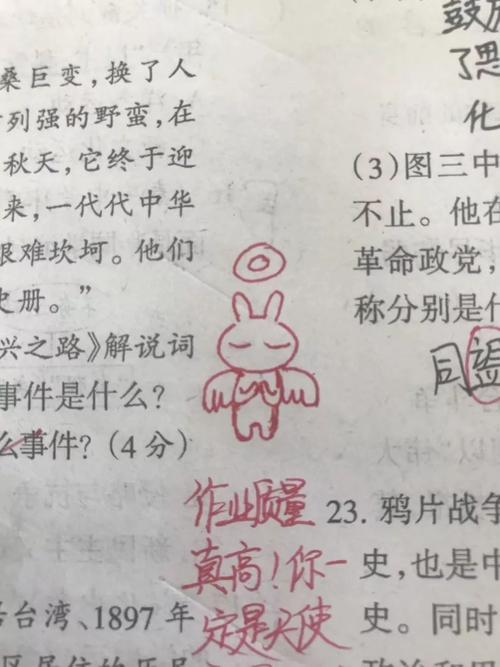 桑巨变,换了人
列强的野蛮,在
秋天,它终于迎
来,一代代中华
艰难坎坷。他们
史册。”
兴之路》解说词
事件是什么?
么事件?(4分)
台湾、1897年
作业质量
真高!你一
定是天使
鼓放
了思
化
(3)图三中
不止。他在
革命政党,
称分别是什
同盟
23. 鸦片战争
史,也是中
史。同时